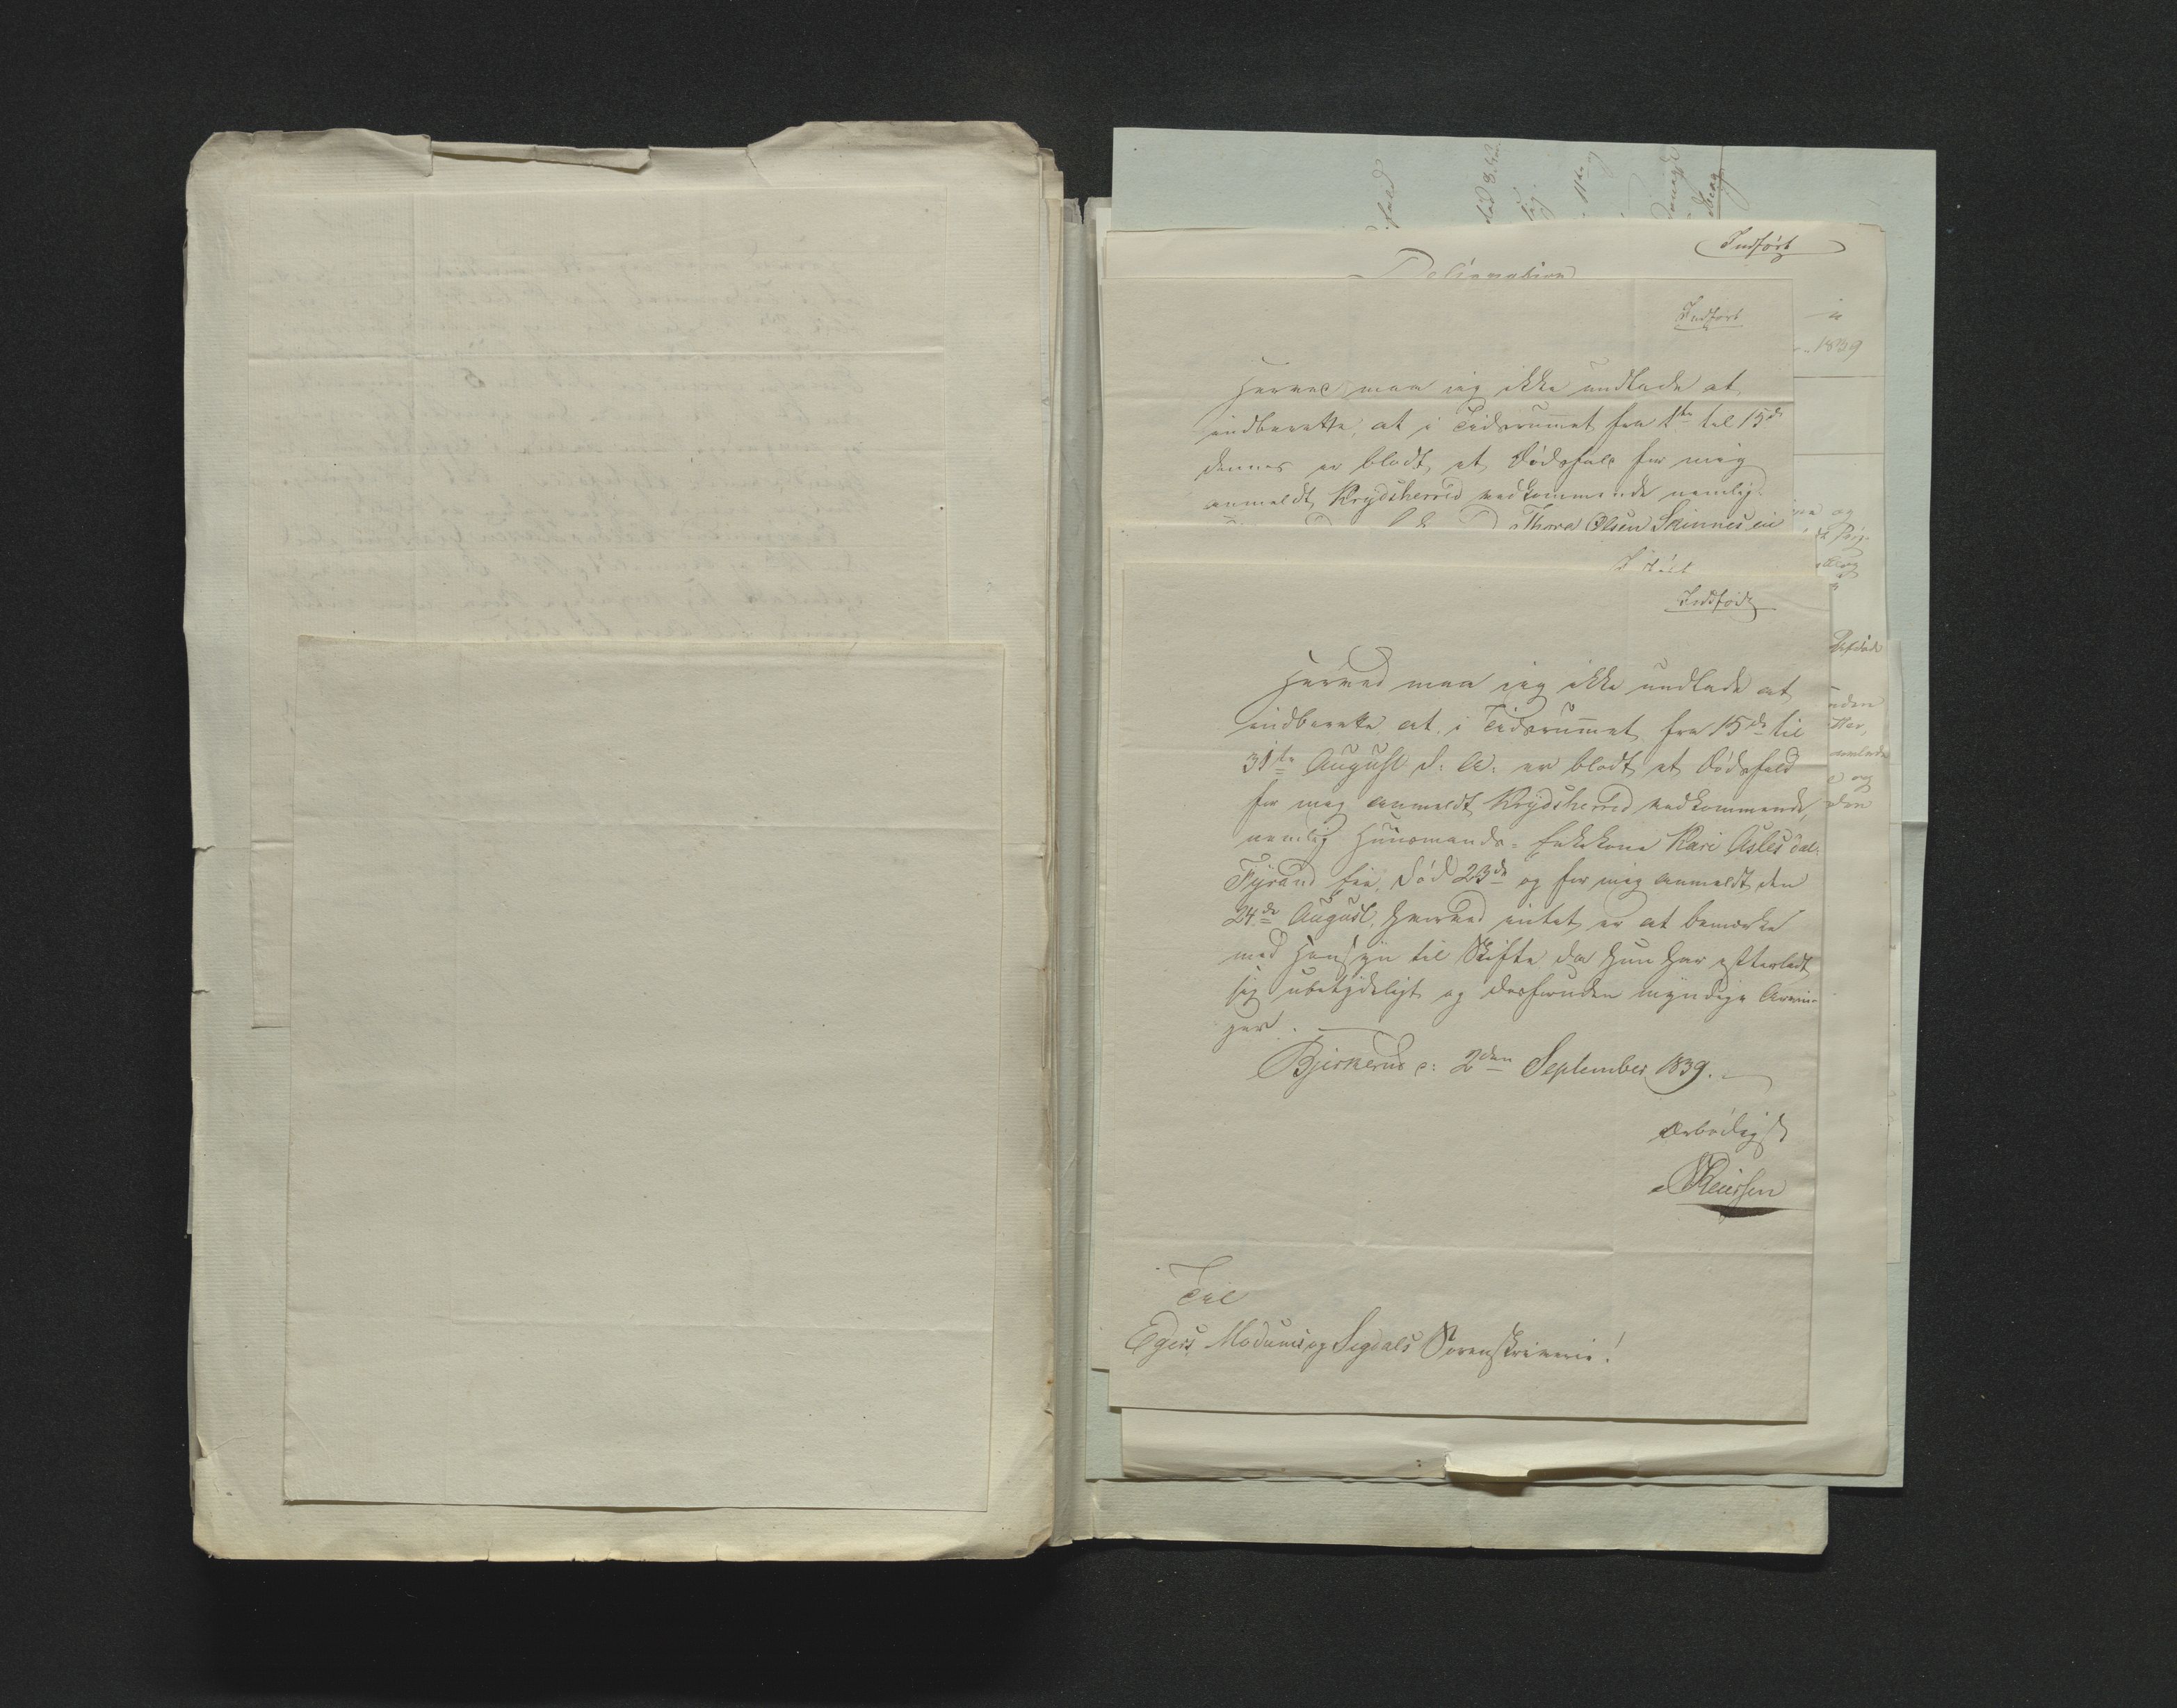 Indført
Designation
Indført
1839
Herved maa jeg ikke undlade at
indberette, at i Tidsrummet fra 1ste til 15de
dennes er blodt et Dødsfald for mig
anmeldt Krydsherred vedkommende nemlig
Thore Olsen Skinnes eie
Indført
Herved maa jeg ikke undlade at
indberette at i Tidsrummet fra 15de til
31te August d: A: er blodt et Dødsfald
for mig anmeldt Krydsherred vedkommende,
nemlig Huusmands-Enkekone Kari Asles dat:
Fyrand eie, død 23de og for mig anmeldt den
24de August, hvorved intet er at bemærke
med Hensyn til Skifte da hun har efterladt
sig ubetydeligt og desforuden myndige Arvin-
ger.
Bjerkerud d: 2den September 1839.
Ærbødigst
Reiersen
Til
Egers, Modums og Segdals Sorenskriverie!